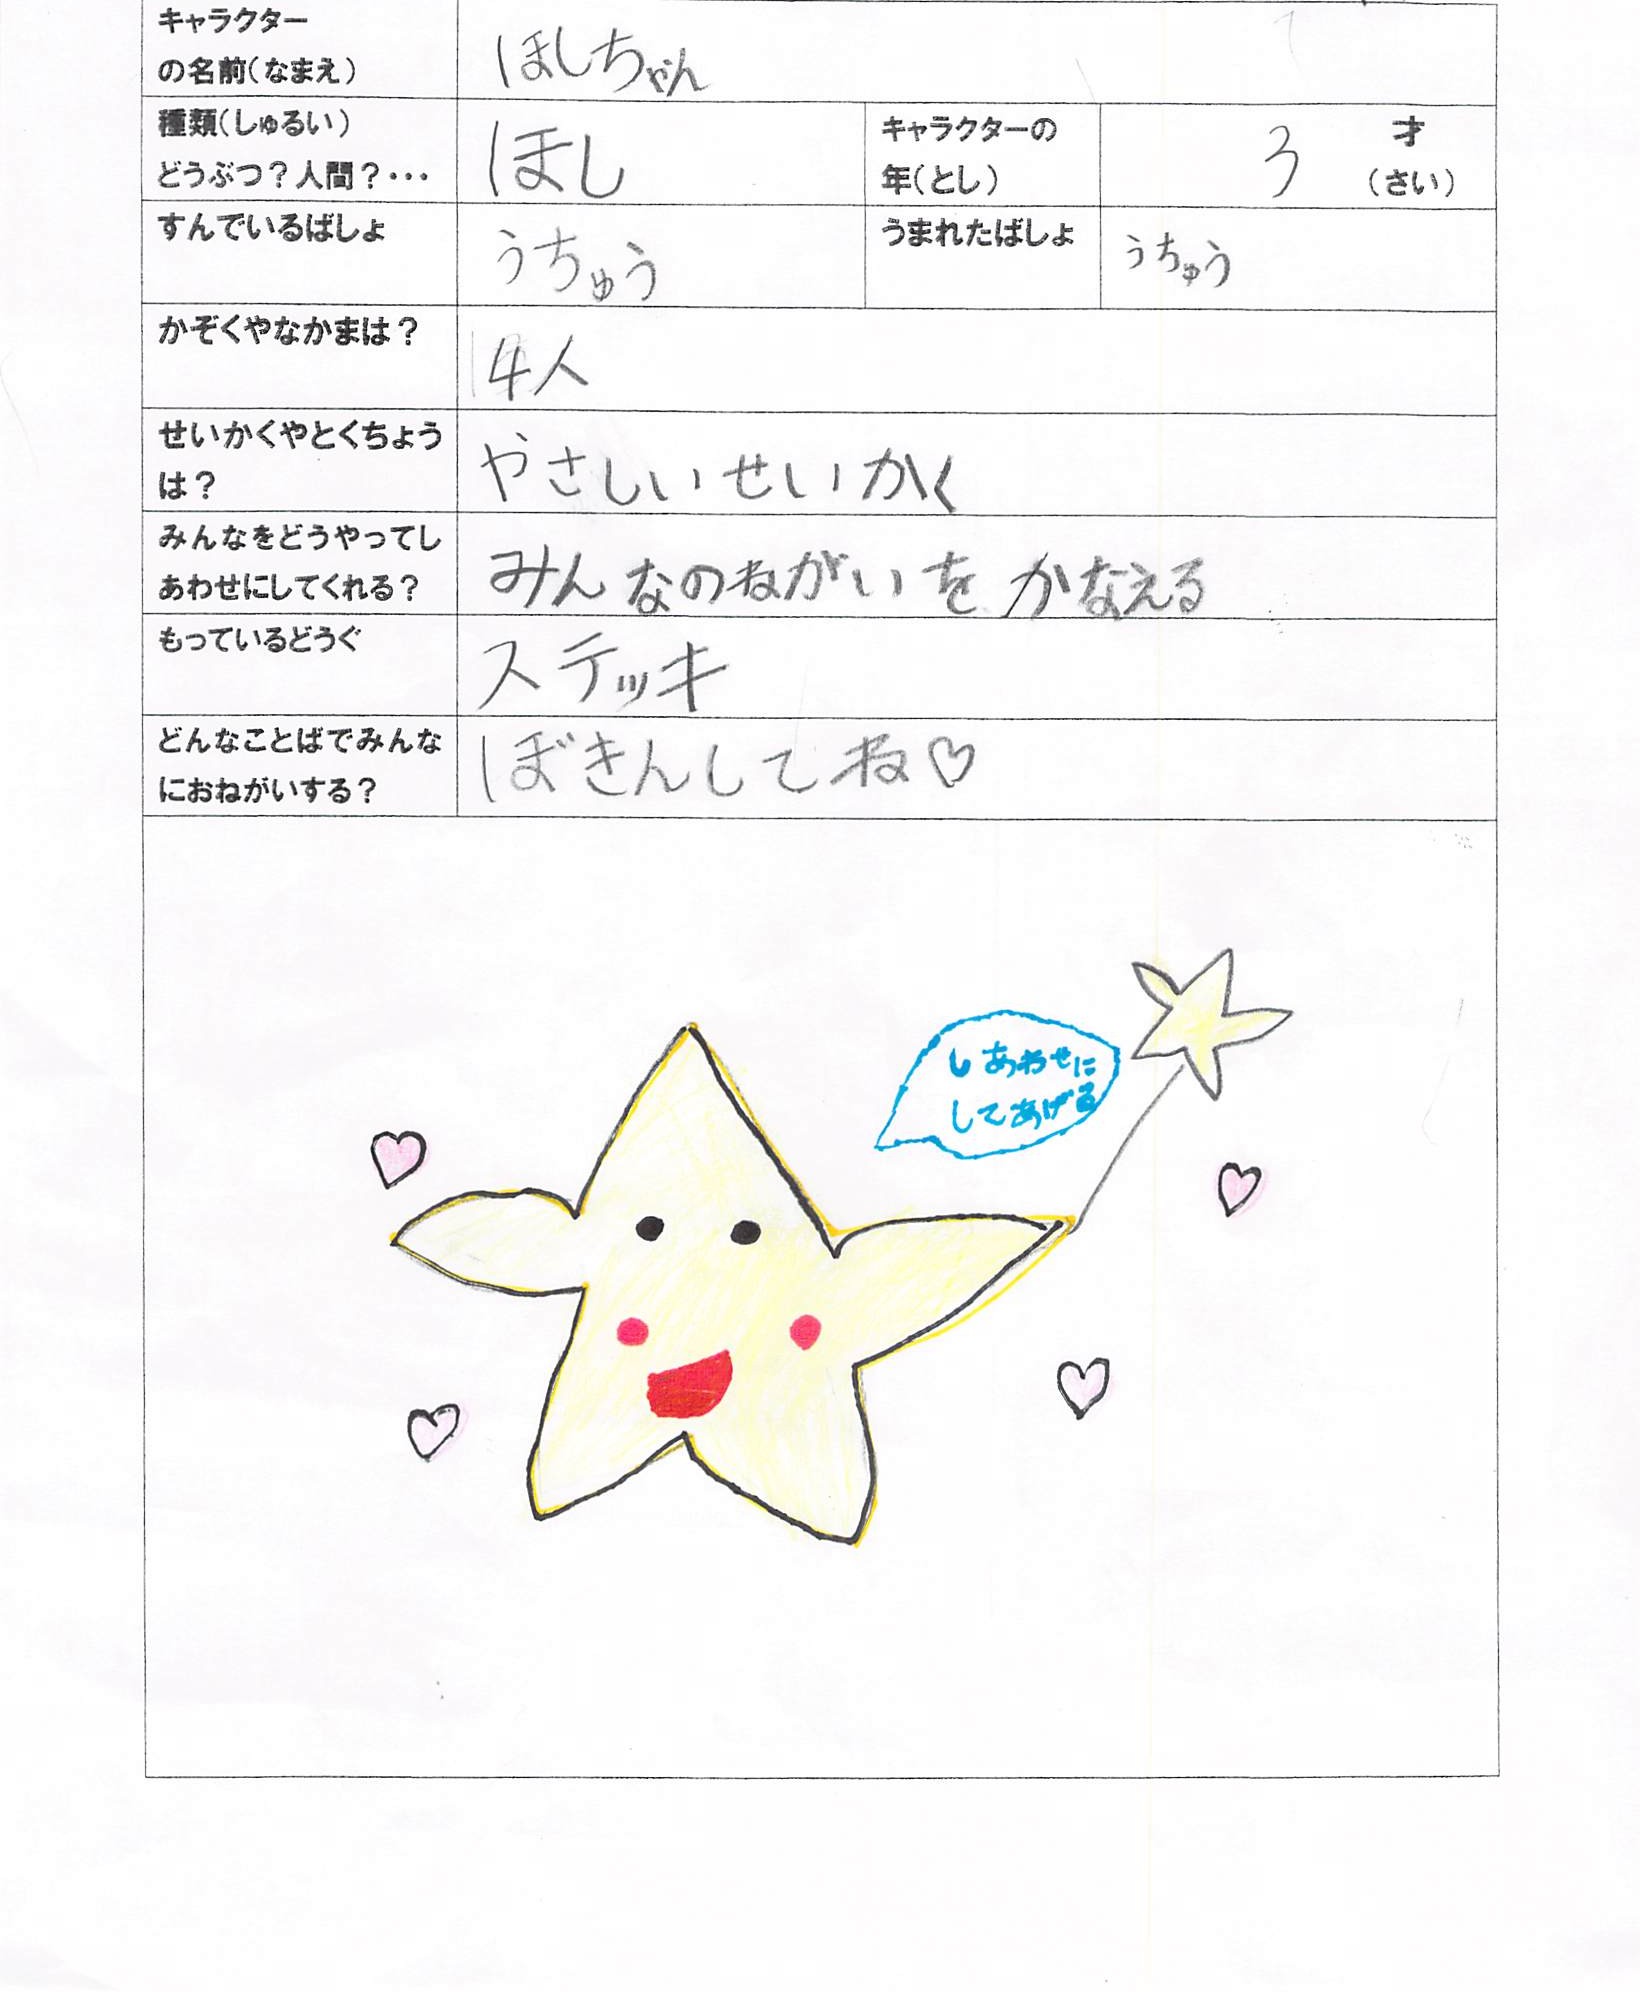 キャラクター
の名前(なまえ)
ほしちゃん
種類(しゅるい)
どうぶつ?人間?・・・
ほし
キャラクターの
年(とし)
3
才
(さい)
すんでいるばしょ
うちゅう
うまれたばしょ
うちゅう
かぞくやなかまは?
4人
せいかくやとくちょう
は?
やさしいせいかく
みんなをどうやってし
あわせにしてくれる?
みんなのねがいをかなえる
もっているどうぐ
ステッキ
どんなことばでみんな
におねがいする?
ぼきんしてね♡
しあわせに
してあげる